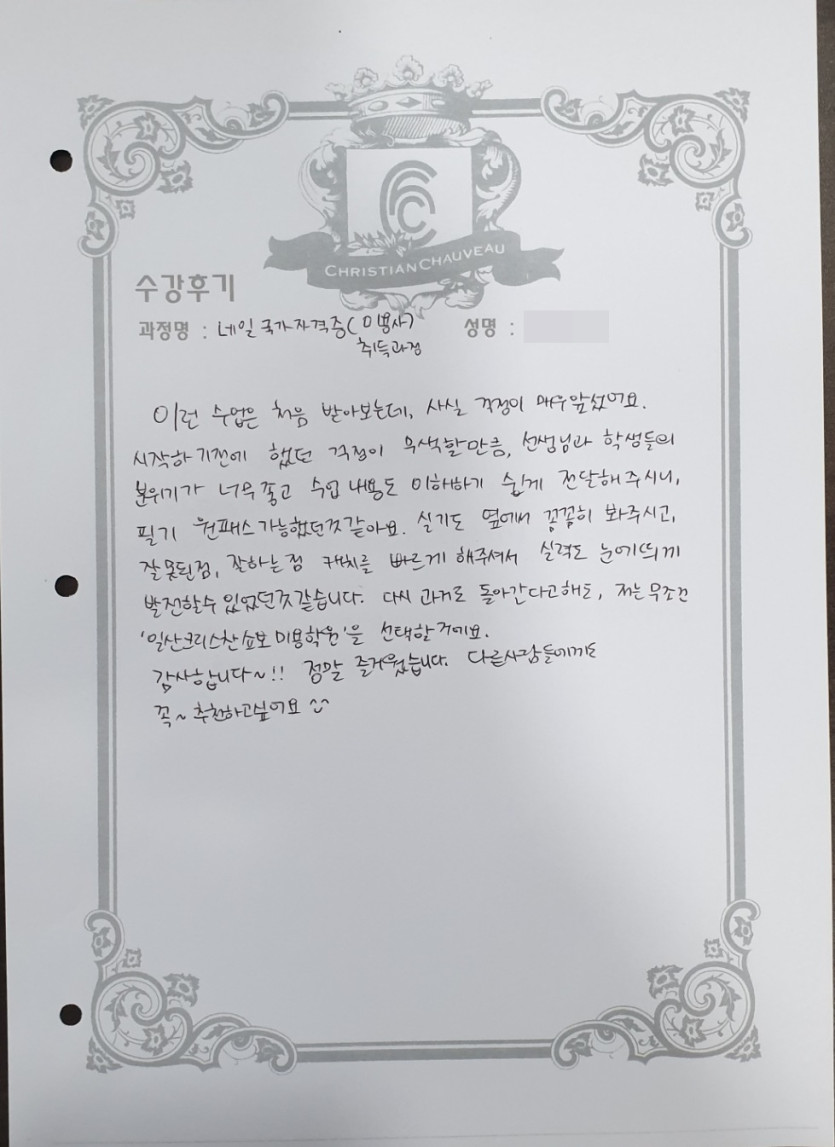 CHRISTIAN CHAUVEAU
수강후기
과정명 : 네일 국가자격증(미용사) 성명 :
취득과정
이런 수업은 처음 받아보는데, 사실 걱정이 매우 앞섰어요.
시작하기전에 했던 걱정이 무색할만큼, 선생님과 학생들의
분위기가 너무 좋고 수업 내용도 이해하기 쉽게 전달해주시니,
필기 원패스가능했던것같아요. 실기도 옆에서 꼼꼼히 봐주시고,
잘못된점, 잘하는점 캐치를 빠르게 해주셔서 실력도 눈에띄게
발전할수 있었던것같습니다. 다시 과거로 돌아간다고해도, 저는무조건
'일산크리스찬쇼보미용학원'을 선택할거에요.
감사합니다~!! 정말 즐거웠습니다. 다른사람들에게도
꼭~추천하고싶어요